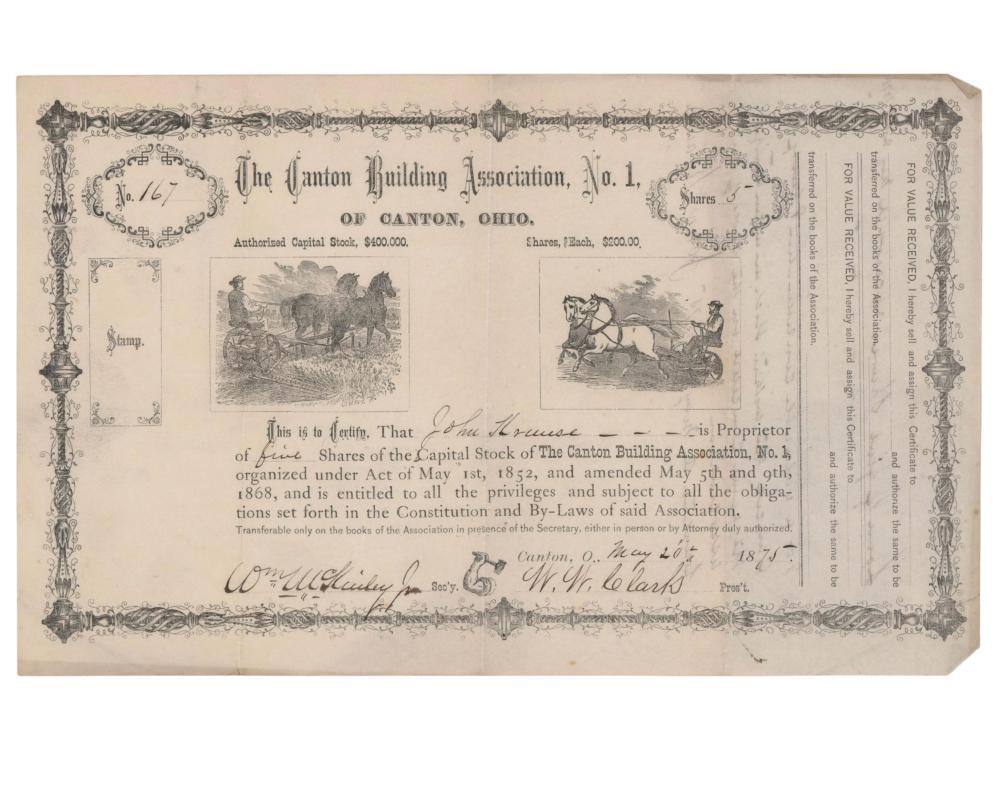 No. 167
The Canton Building Association, No. 1,
Shares 5
OF CANTON, OHIO.
Authorized Capital Stock, $400.000.
Shares, Each, $200.00.
Stamp.
This is to Certify, That John Krause is Proprietor
of five Shares of the Capital Stock of The Canton Building Association, No. 1,
organized under Act of May 1st, 1852, and amended May 5th and 9th,
1868, and is entitled to all the privileges and subject to all the obliga-
tions set forth in the Constitution and By-Laws of said Association.
Transferable only on the books of the Association in presence of the Secretary, either in person or by Attorney duly authorized.
Canton, O., May 20th 1875.
Wm McKinley Jr Sec'y. W. W. Clark Pres't.
FOR VALUE RECEIVED, I hereby sell and assign this Certificate to
and authorize the same to be
transferred on the books of the Association.
FOR VALUE RECEIVED, I hereby sell and assign this Certificate to
and authorize the same to be
transferred on the books of the Association.